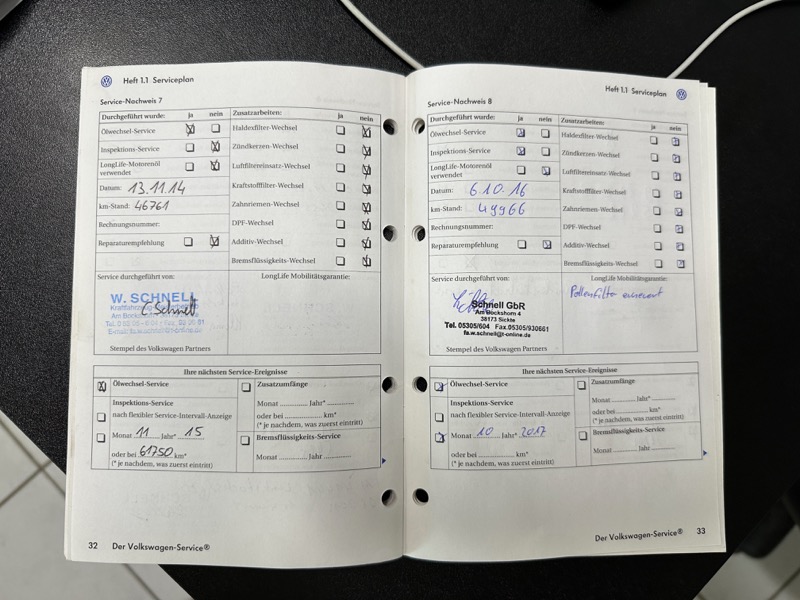 Heft 1.1 Serviceplan
Service-Nachweis 7
Durchgeführt wurde: ja nein
Ölwechsel-Service
Inspektions-Service
LongLife-Motorenöl
verwendet
Datum: 13.11.14
km-Stand: 46761
Rechnungsnummer:
Reparaturempfehlung
Zusatzarbeiten: ja nein
Haldexfilter-Wechsel
Zündkerzen-Wechsel
Luftfiltereinsatz-Wechsel
Kraftstofffilter-Wechsel
Zahnriemen-Wechsel
DPF-Wechsel
Additiv-Wechsel
Bremsflüssigkeits-Wechsel
Service durchgeführt von:
W. SCHNELL
C. Schnell
Stempel des Volkswagen Partners
LongLife Mobilitätsgarantie:
Ihre nächsten Service-Ereignisse
Ölwechsel-Service
Inspektions-Service
nach flexibler Service-Intervall-Anzeige
Monat 11 Jahr* 15
oder bei 61750 km*
(* je nachdem, was zuerst eintritt)
Zusatzumfänge
Monat Jahr*
oder bei km*
(* je nachdem, was zuerst eintritt)
Bremsflüssigkeits-Service
Monat Jahr
32 Der Volkswagen-Service®
Heft 1.1 Serviceplan
Service-Nachweis 8
Durchgeführt wurde: ja nein
Ölwechsel-Service
Inspektions-Service
LongLife-Motorenöl
verwendet
Datum: 6.10.16
km-Stand: 49966
Rechnungsnummer:
Reparaturempfehlung
Zusatzarbeiten: ja nein
Haldexfilter-Wechsel
Zündkerzen-Wechsel
Luftfiltereinsatz-Wechsel
Kraftstofffilter-Wechsel
Zahnriemen-Wechsel
DPF-Wechsel
Additiv-Wechsel
Bremsflüssigkeits-Wechsel
Service durchgeführt von:
Schnell GbR
Am Bockshorn 4
38173 Sickte
Tel. 05305/604 Fax.05305/930661
fa.w.schnell@t-online.de
Stempel des Volkswagen Partners
LongLife Mobilitätsgarantie:
Pollenfilter erneuert
Ihre nächsten Service-Ereignisse
Ölwechsel-Service
Inspektions-Service
nach flexibler Service-Intervall-Anzeige
Monat 10 Jahr* 2017
oder bei km*
(* je nachdem, was zuerst eintritt)
Zusatzumfänge
Monat Jahr*
oder bei km*
(* je nachdem, was zuerst eintritt)
Bremsflüssigkeits-Service
Monat Jahr
Der Volkswagen-Service® 33